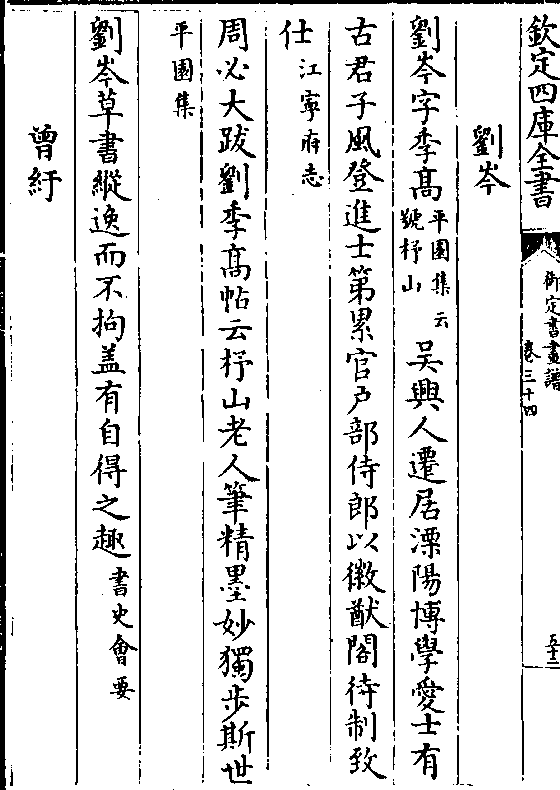 欽定四庫全書
御定書畫譜
卷三十四
五十二
劉岑
劉岑字季髙平園集云號杼山吳興人遷居溧陽博學愛士有
古君子風登進士第累官戸部侍郎以徽猷閣待制致
仕江寧府志
周必大跋劉季髙帖云杼山老人筆精墨妙獨步斯世
平園集
劉岑草書縱逸而不拘盖有自得之趣書史會要
曾紆